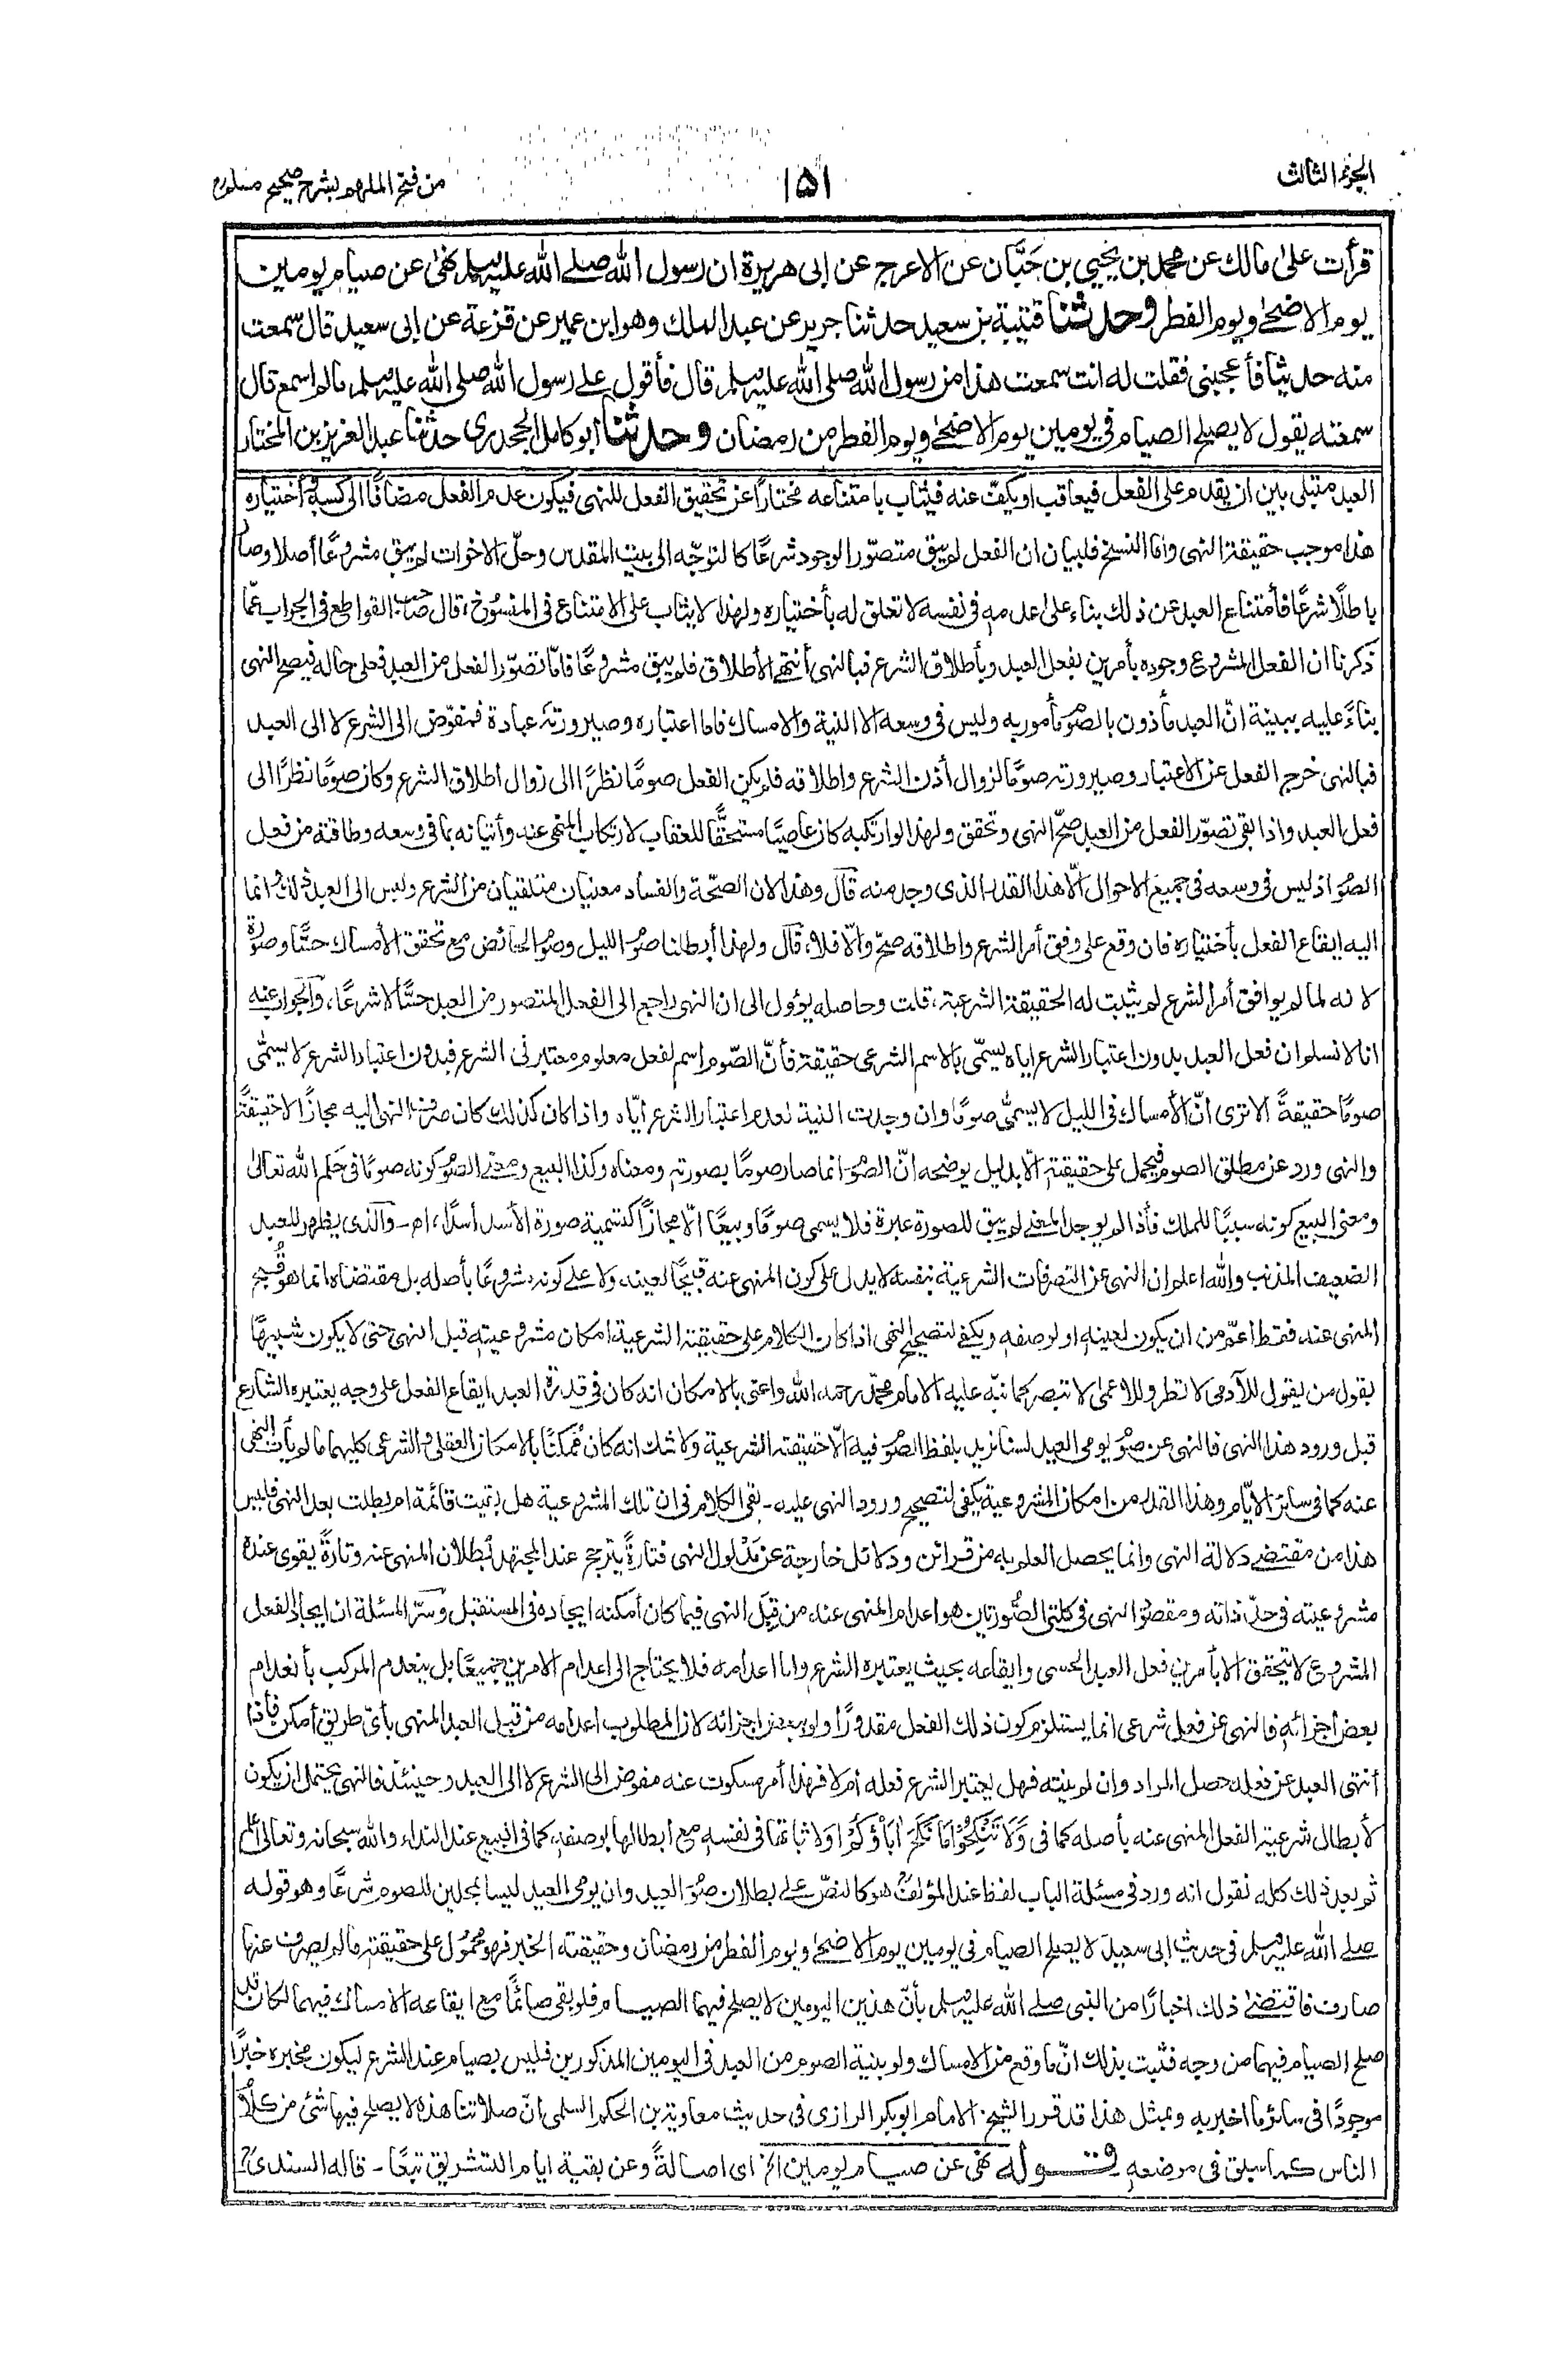 الجزء الثالث
١٥١
من فتح الملهم بشرح صحيح مسلم
قرأت على مالك عن محمد بن يحيى بن حَبَّان عن الاعرج عن ابى هريرة ان رسول الله صلے الله عليه وسلم نهى عن صيام يومين
يوم الاضحٰے ويوم الفطر وحدثنا قتيبة بن سعيد حدثنا جرير عن عبد الملك وهو ابن عمير عن قزعة عن ابى سعيد قال سمعت
منه حديثا فأعجبنى فقلت له انت سمعت هذا من رسول الله صلى الله عليه وسلم قال فأقول علے رسول الله صلى الله عليه وسلم مالم اسمع قال
سمعته يقول لا يصلح الصيام فى يومين يوم الاضحٰے ويوم الفطر من رمضان وحدثنا ابو كامل الجحدرى حدثنا عبد العزيز بن المختار
العبد مبتلى بين ان يقدم على الفعل فيعاقب او يكفّ عنه فيثاب بامتناعه مختارًا عن تحقيق الفعل للنهى فيكون عدم الفعل مضافًا الى كسبه وأختياره
هذا موجب حقيقة النهى واما النسخ فلبيان ان الفعل لم يبق متصوّر الوجود شرعًا كالتوجّه الى بيت المقدس وحلّ الاخوات لم يبق مشروعًا أصلا وصار
باطلًا شرعًا فأمتناع العبد عن ذلك بناء على عدمه فى نفسه لا تعلق له بأختياره ولهذا لا يثاب على الامتناع فى المنسوخ، قال صاحب القواطع فى الجواب عمّا
ذكرنا ان الفعل المشروع وجوده بأمرين بفعل العبد وبأطلاق الشرع فبالنهى أنتهے الأطلاق فلم يبق مشروعًا فامّا تصوّر الفعل من العبد فعلى حاله فيصح النهى
بناءً عليه ببينة انّ العبد مأذون بالصوم مأمور به وليس فى وسعه الا النية والامساك فاما اعتباره وصيرورته عبادة فمفوّض الى الشرع لا الى العبد
فبالنهى خرج الفعل عن الاعتبار وصيرورته صومًا لزوال أذن الشرع واطلاقه فلم يكن الفعل صومًا نظرًا الى زوال اطلاق الشرع وكان صومًا نظرًا الى
فعل العبد واذا بقى تصوّر الفعل من العبد صحّ النهى وتحقق ولهذا لو ارتكبه كان عاصيًا مستحقًّا للعقاب لارتكاب المنهى عنه وأتيانه بما فى وسعه وطاقته من فعل
الصوم اذ ليس فى وسعه فى جميع الاحوال الّا هذا القدر الذى وجد منه قال وهذا لان الصحّة والفساد معنيان متلقيان من الشرع وليس الى العبد ذلك وانما
اليه ايقاع الفعل بأختياره فان وقع على وفق أمر الشرع واطلاقه صحّ والّا فلا، قال ولهذا أبطلنا صوم الليل وصوم الحائض مع تحقق الأمساك حسًّا وصورة
لانه لما لم يوافق أمر الشرع لم يثبت له الحقيقة الشرعية، قلت وحاصله يؤول الى ان النهى راجع الى الفعل المتصور من العبد حسًّا لا شرعًا، والجواب عنه
انا لا نسلم ان فعل العبد بدون اعتبار الشرع اياه يسمّى بالاسم الشرعى حقيقة فأنّ الصّوم اسم لفعل معلوم معتبر فى الشرع فبدون اعتبار الشرع لا يسمّى
صومًا حقيقةً الا ترى انّ الأمساك فى الليل لا يسمّى صومًا وان وجدت النية لعدم اعتبار الشرع ايّاه واذا كان كذلك كان صرف النهى اليه مجازًا لا حقيقةً
والنهى ورد عن مطلق الصوم فيحمل على حقيقته الّا بدليل يوضحه انّ الصوم انما صار صومًا بصورته ومعناه وكذا البيع ومعنى الصوم كونه صومًا فى حكم الله تعالىٰ
ومعنى البيع كونه سببًا للملك فأذا لم يوجد المعنے لم يبق للصورة عبرة فلا يسمى صومًا وبيعًا الّا مجازًا كتسمية صورة الأسد أسدًا، اه - والذى يظهر للعبد
الضعيف المذنب والله اعلم ان النهى عن التصرفات الشرعية بنفسه لا يدل على كون المنهى عنه قبيحًا لعينه ولا علے كونه مشروعًا بأصله بل مقتضاه انما هو قُبح
المنهى عنه فقط أعمّ من ان يكون لعينه او لوصفه ويكفے لتصحيح النهى اذا كان الكلام على حقيقته الشرعية امكان مشروعيته قبل النهى حتى لا يكون شبيهًا
بقول من يقول للآدمى لا تطر وللاعمٰى لا تبصر كما نبّه عليه الامام محمّد رحمه الله واعنى بالامكان انه كان فى قدرة العبد ايقاع الفعل على وجه يعتبره الشارع
قبل ورود هذا النهى فالنهى عن صوم يومى العيد لسنا نريد بلفظ الصوم فيه الّا حقيقته الشرعية ولا شك انه كان ممكنًا بالامكان العقلى والشرعى كليهما ما لم يأت النهى
عنه كما فى سائر الايّام وهذا القدر من امكان المشروعية يكفى لتصحيح ورود النهى عليه - بقى الكلام فى ان تلك المشروعية هل بقيت قائمة ام بطلت بعد النهى فليس
هذا من مقتضے دلالة النهى وانما يحصل العلم به من قرائن ودلائل خارجة عن مدلول النهى فتارةً يترجح عند المجتهد بُطلان المنهى عنه وتارةً يقوى عنده
مشروعيته فى حدّ ذاته ومقصود النهى فى كلتى الصُّورتين هو اعدام المنهى عنه من قِبَل النهى فيما كان أمكنه ايجاده فى المستقبل وسرّ المسئلة ان ايجاد الفعل
المشروع لا يتحقق الا بأمرين فعل العبد الحسى وايقاعه بحيث يعتبره الشرع واما اعدامه فلا يحتاج الى اعدام الامرين جميعًا بل ينعدم المركب بأنعدام
بعض اجزائه فالنهى عن فعل شرعى انما يستلزم كون ذلك الفعل مقدورًا ولو ببعض اجزائه لان المطلوب اعدامه من قبل العبد المنهى بأىّ طريق أمكن فأذا
أنتهى العبد عن فعله حصل المراد وان لم ينته فهل يعتبر الشرع فعله ام لا فهذا أمر مسكوت عنه مفوض الى الشرع لا الى العبد وحينئذ فالنهى يحتمل ان يكون
لأبطال شرعية الفعل المنهى عنه بأصله كما فى وَلَا تَنْكِحُوْا مَا نَكَحَ اٰبَاؤُكُمْ اولاثباتها فى نفسه مع ابطالها بوصفه، كما فى البيع عند النداء والله سبحانه وتعالى اعلم
ثم بعد ذلك كله نقول انه ورد فى مسئلة الباب لفظ عند المؤلف هو كالنصّ علے بطلان صوم العيد وان يومى العيد ليسا بمحلين للصوم شرعًا وهو قوله
صلے الله عليه وسلم فى حديث ابى سعيد لا يصلح الصيام فى يومين يوم الاضحٰے ويوم الفطر من رمضان وحقيقته الخبر فهو محمول على حقيقته مالم يصرف عنها
صارف فاقتضے ذلك اخبارًا من النبى صلے الله عليه وسلم بأنّ هذين اليومين لا يصلح فيهما الصيام فلو بقى صائمًا مع ايقاعه الامساك فيهما لكان قد
صلح الصيام فيهما من وجه فثبت بذلك انّ ما وقع من الامساك ولو بنية الصوم من العبد فى اليومين المذكورين فليس بصيام عند الشرع ليكون مخبره خبرًا
موجودًا فى سائر ما اخبر به وبمثل هذا قد قرر الشيخ الامام ابو بكر الرازى فى حديث معاوية بن الحكم السلمى انّ صلاتنا هذه لا يصلح فيها شئ من كلام
الناس كما سبق فى موضعه قــولـه نهى عن صيام يومين الخ اى اصالةً وعن بقية ايام التشريق تبعًا - قاله السندى